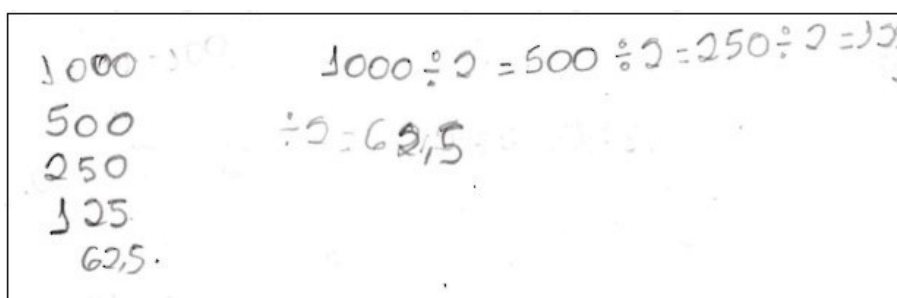 1000
500
250
125
62,5.
1000÷2=500÷2=250÷2=12
÷2=62,5